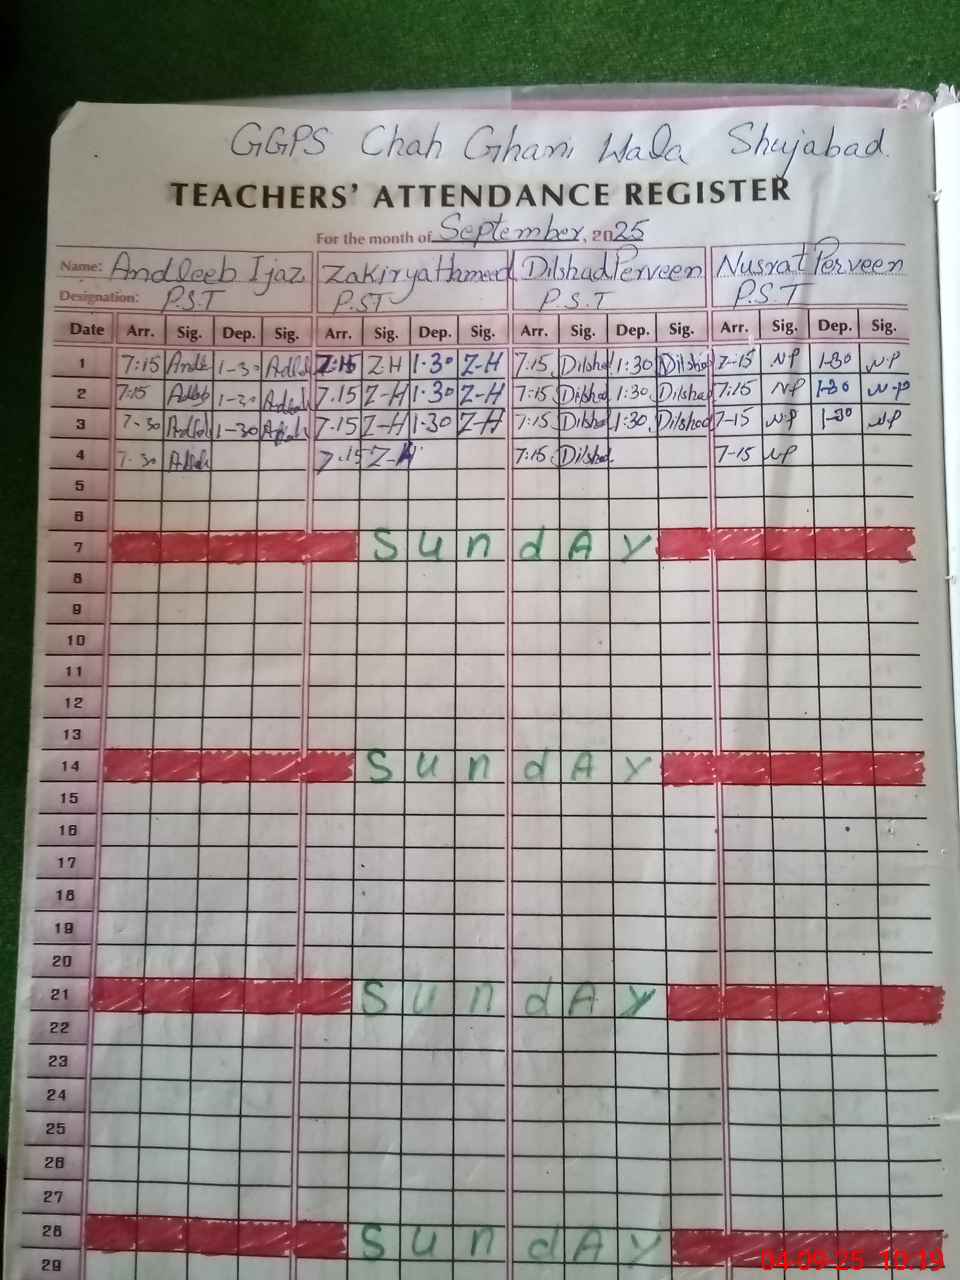 GGPS Chah Ghani Wala Shujabad.
TEACHERS' ATTENDANCE REGISTER
For the month of September, 2025
Name: Andleeb Ijaz Zakirya Hameed Dilshad Perveen Nusrat Perveen
Designation: P.S.T P.ST P.S.T P.S.T
Date Arr. Sig. Dep. Sig. Arr. Sig. Dep. Sig. Arr. Sig. Dep. Sig. Arr. Sig. Dep. Sig.
1 7:15 1-30 7:15 Z-H 1-30 Z-H 7:15 Dilshad 1:30 Dilshad 7-15 NP 1-30 N.P
2 7:15 1-30 7.15 Z-H 1-30 Z-H 7:15 Dilshad 1:30 Dilshad 7:15 NP 1-30 N-P
3 7-30 1-30 7.15 Z-H 1-30 Z-H 7:15 Dilshad 1:30 Dilshad 7-15 NP 1-30 NP
4 7-30 7.15 Z-H 7:15 Dilshad 7-15 NP
5
6
7 SundAy
8
9
10
11
12
13
14 SundAy
15
16
17
18
19
20
21 SundAy
22
23
24
25
26
27
28 SundAy
29
04-09-25 10:19